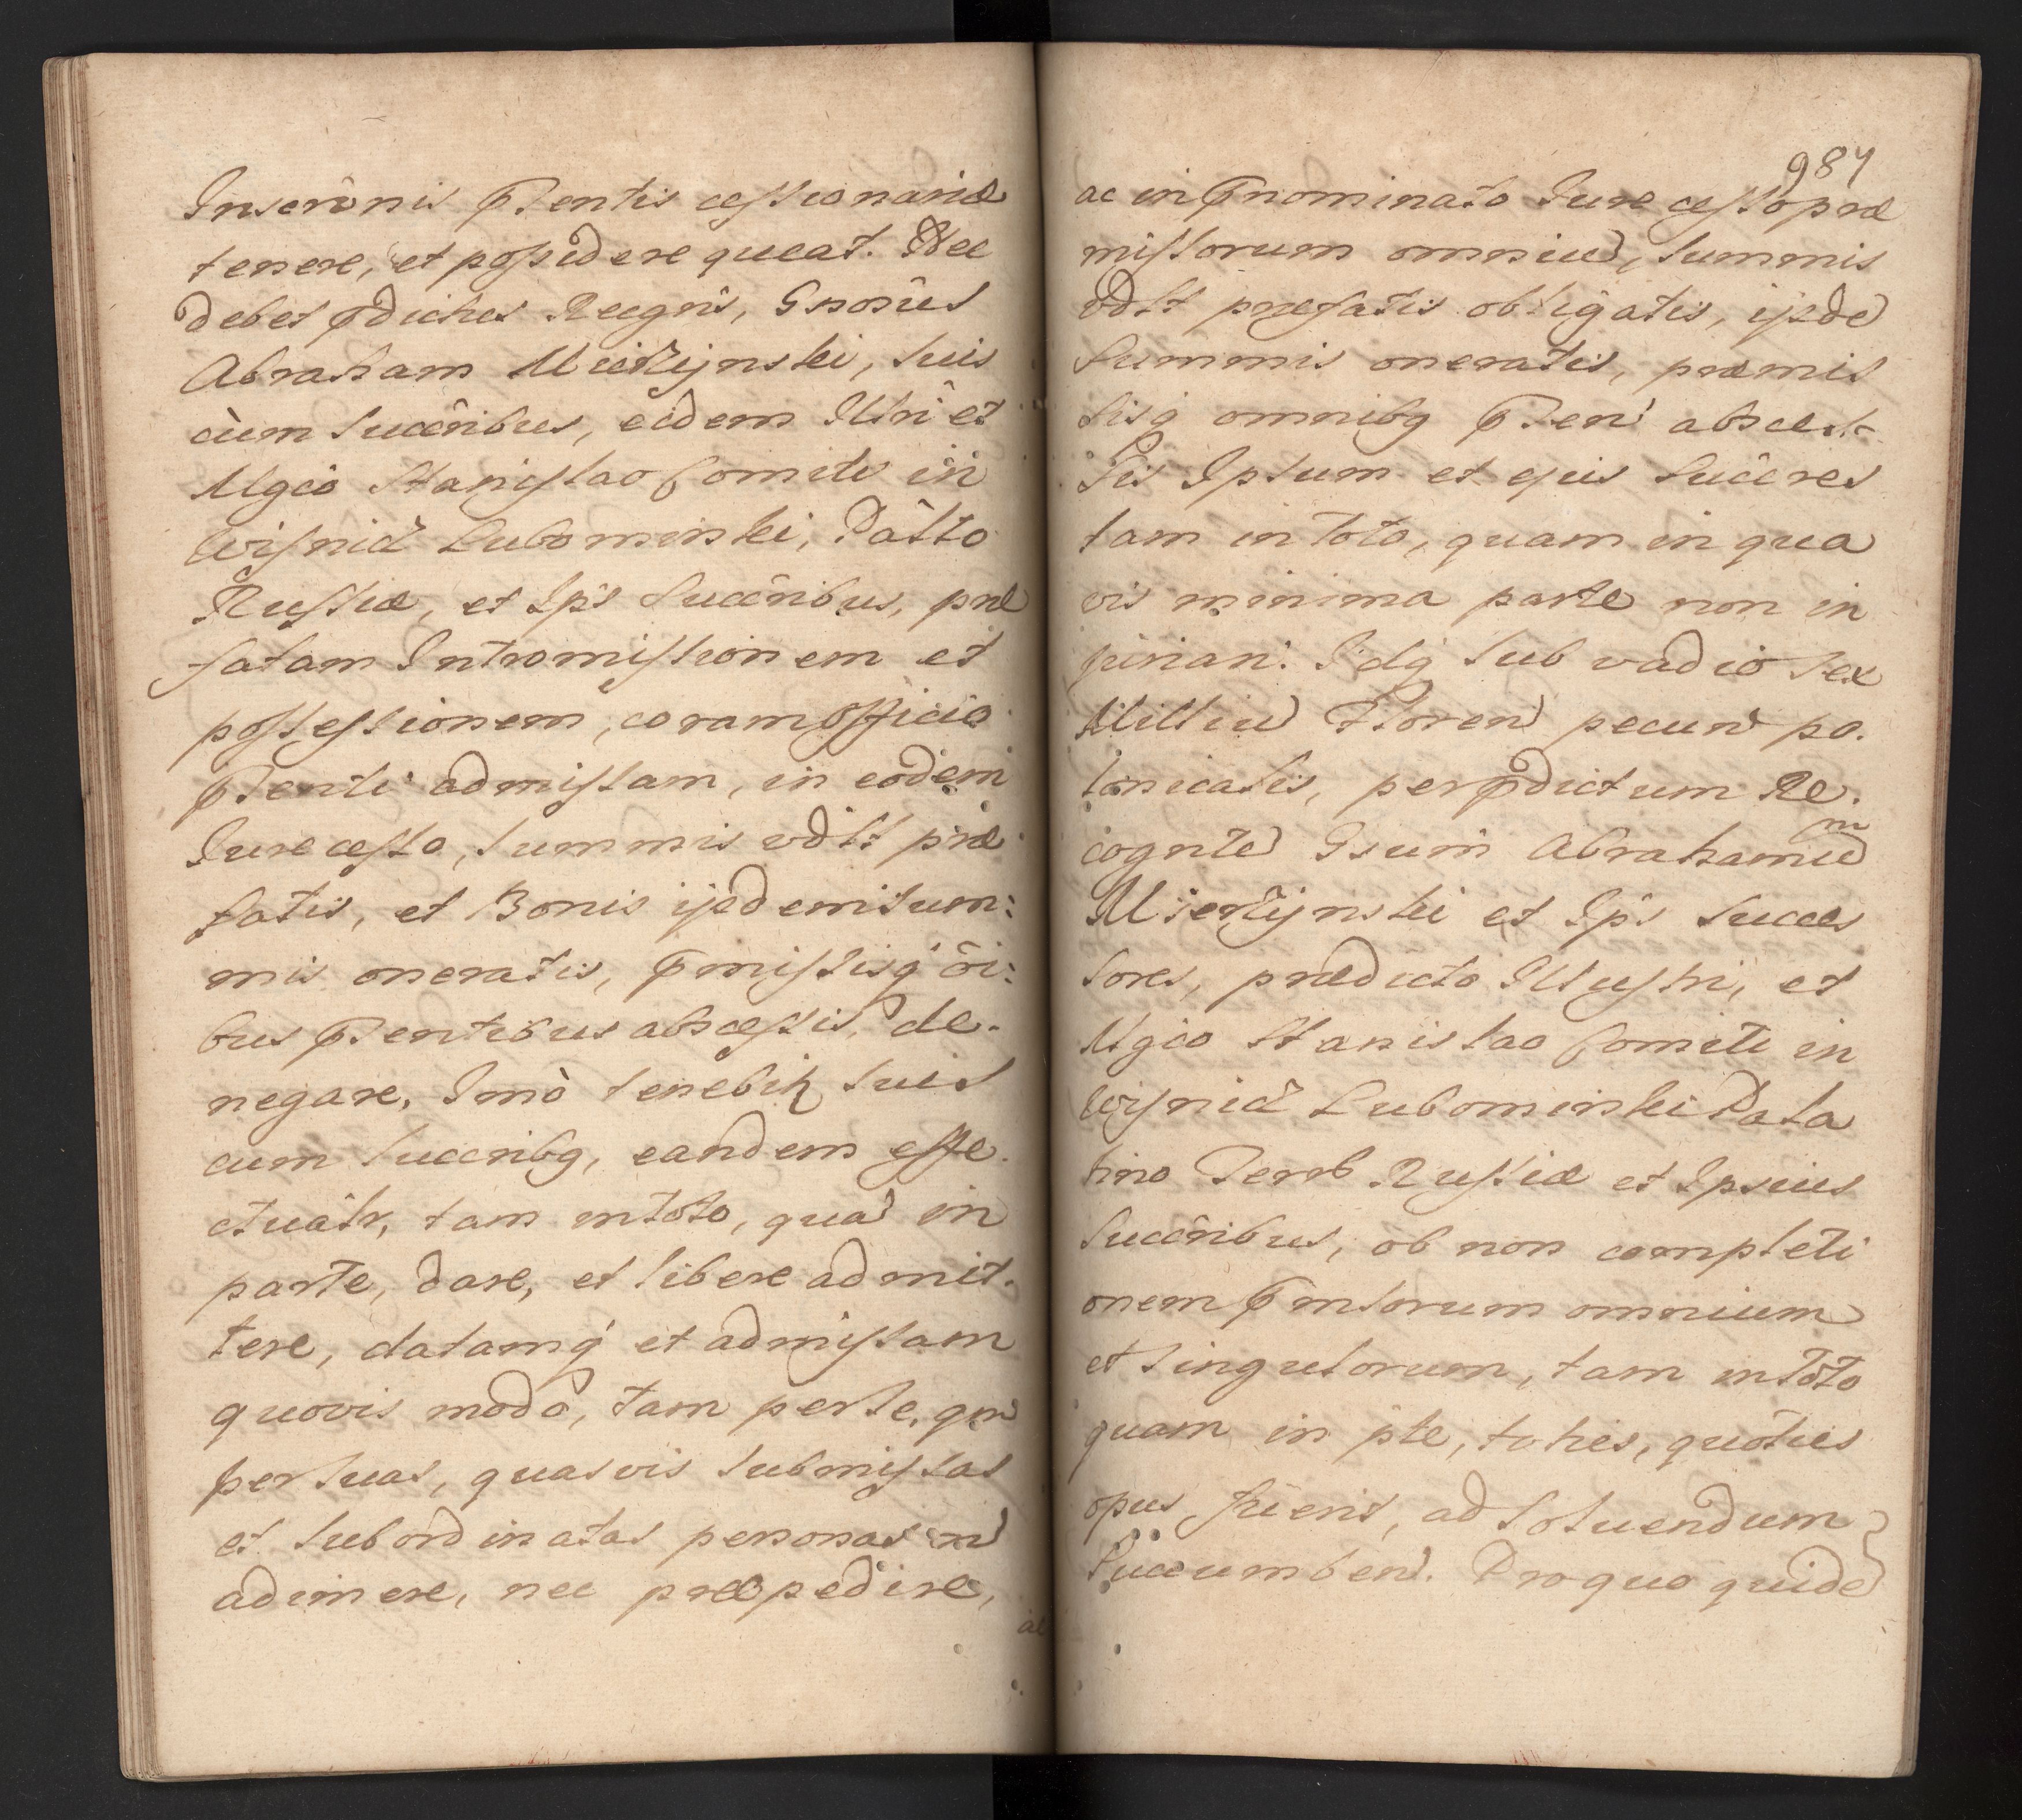 Inscrônis p̄sentis cessionariæ
tenere, et possidere queat. Nec
debet p̄dictus Recgns̄, Gnosûs
Abraham Mierżÿnski, suis
cùm succêribus, eidem Illrî et
Mgcô Stanislao Comiti in
Wisnicż Lubomirski, Pałto
Russiæ, et Ips̄ succêribus, præ
fatam Intromissionem et
possessionem, coram officio
p̄senti admissam, in eodem
Jure cesso, summis vdłt præ
fatis, et Bonis ijsdem sum:
mis oneratis, p̄missisq̨ ōi:
bus p̄sentibus abscessis, de-
negare, Imò tenebitr suis
cum succribq̨, eandem effe-
ctuałr, tam in toto, quā in
parte, dare, et libere admit-
tere, datamq̨ et admissam
quovis modo, tam per se, qm̄
per suas, quasvis submissas
et subordinatas personas nō
adimere, nec præpedire,
ac
987
ac in p̄nominato Jure cesso præ
missorum omniū, summis
vdłt præfatis obligatis, ijsdē
summis oneratis, præmis
sisq̨ omnibq̨ p̄sen̄ absces-
sis Ipsum et ejus succres
tam in toto, quam in qua
vis minima parte non in
jurian̄. Idq̨ sub vadio sex
Milliū Floren̄ pecun̄ po-
lonicalis, per p̄dictum Re-
cogntē Gsum Abrahamū
m
Mierżÿnski et Ips̄ succes
sores, prædicto Illustri, et
Mgco Stanislao Comiti in
Wisnicż Lubomirski Pala
tino Terrb Russiæ et Ipsius
succêribus, ob non completi
onem p̄mssorum omnium
et singulorum, tam in toto
quam in pte, toties, quoties
opus fûerit, ad solvendum
succumben̄. Pro quo quidē